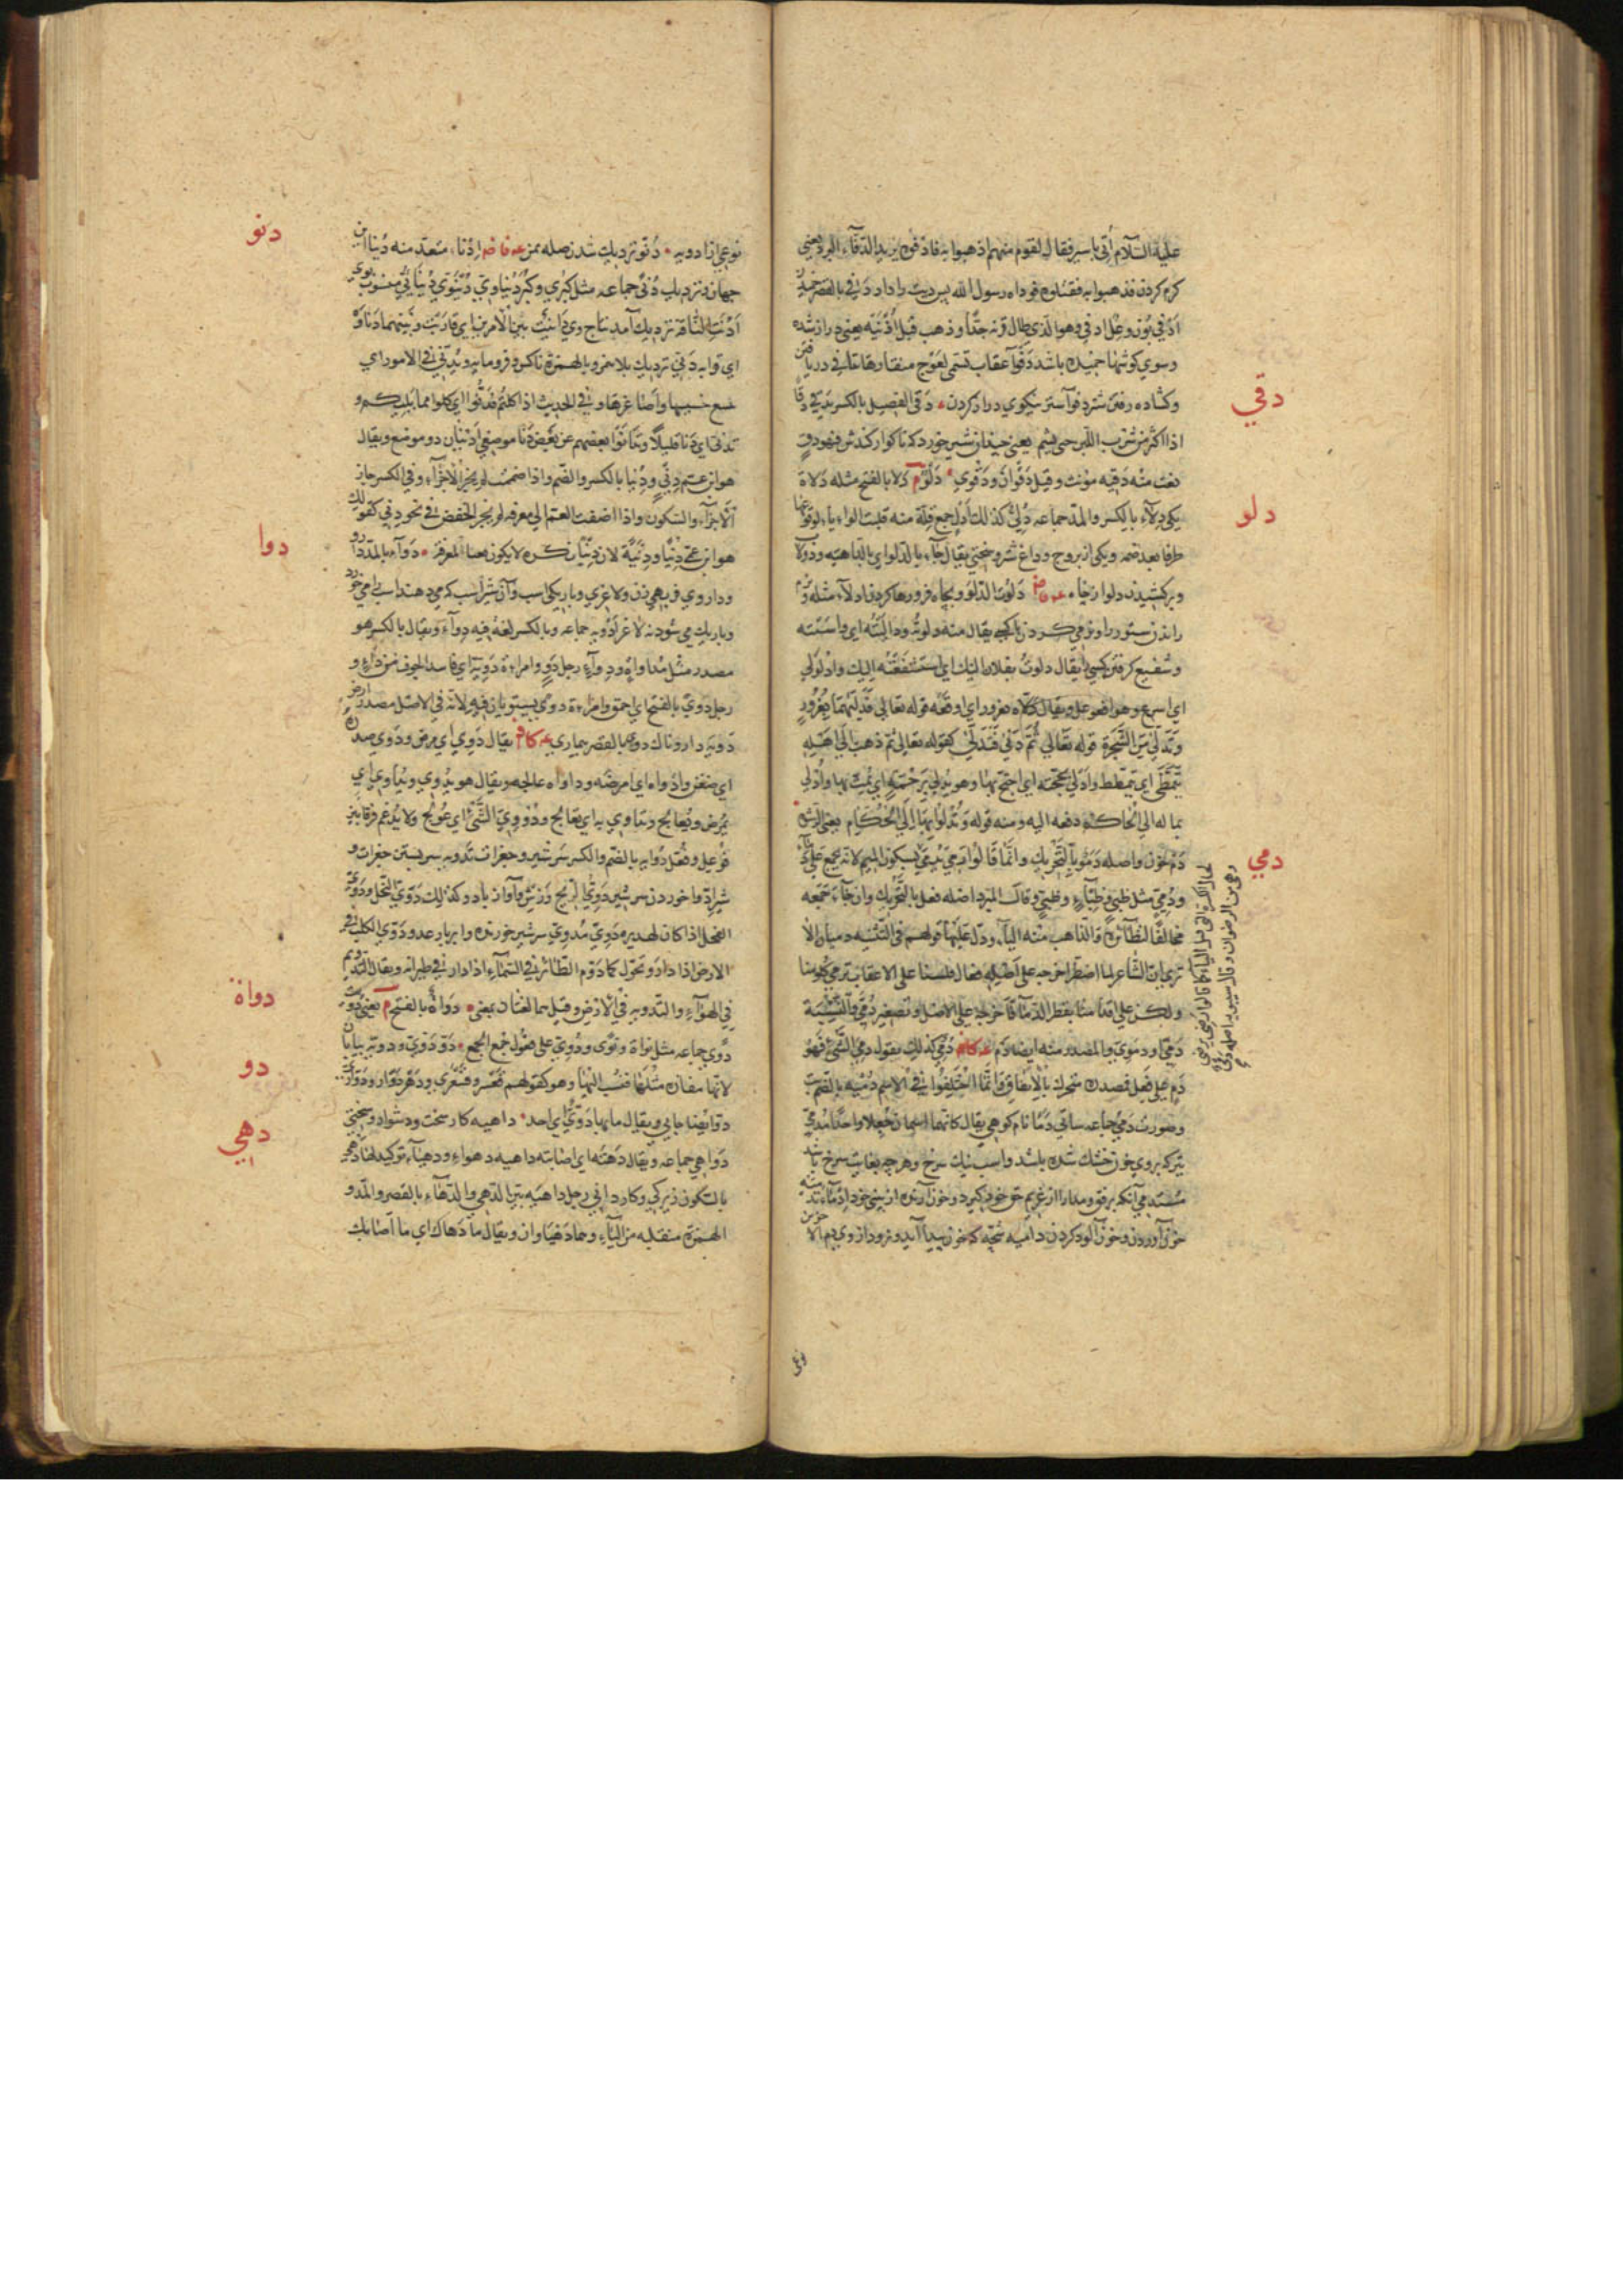 عليه السلام اُتي باسير فقال لقوم منهم اذهبوا به فادفوه يريد الدفاء البرد يعني
كرم كردن فذهبوا به فقتلوه فوداه رسول الله پس ديت او داد دفي بالقصر
ادفي بوزن وعل ادفي وهو الذي طال قرنه جدّا وذهب قبل اذنيه يعني دراز شده
وسوي كوشها خميده باشد دفوآ عقاب تسمي لعوج منقارها
دقي
وكشاده رفتن شتر دفوآ ستر نيكوي دراز كردن دقي الفصيل بالكسر يدقي دقا
اذا اكثر من شرب اللبن حتى يبشم يعني چندان شير خورد كه ناكوار كندش فهو دق
نعت منه دقيه مونث وقيل دقوان ودقوي دلو م دلا بالفتح مثله دلاة
دلو
يكي دلآء بالكسر والمد جماعه دليّ كذلك ادل جمع قلة منه قلبت الواو ياء لوقوعها
طرفا بعد ضمه ويكي از بروج وداغ شتر وسختي يقال جآء بالدلو اي بالداهيه
وبركشيدن دلو از چاه دلوت الدلو وبچاه فرو رها كردن ادلآء مثله
راندن ستور را ونرمي كردن با كسي يقال منه دلوته وداليته اي داسنته
وشفيع كرفتن كسي يقال دلوت بفلان اليك اي استشفعته اليك وادلولي
اي اسرع وهو افعوعل ويقال دلاه بغرور اي اوقعه قوله تعالي فدليهما بغرور
وتدلي من الشجرة قوله تعالي ثم دني فتدلي كقوله تعالي ثم ذهب الي اهله
يتمطي اي يتمطط وادلي بحجته اي احتج بها وهو يدلي برحمه اي يمت بها وادلي
بماله الي الحاكم دفعه اليه ومنه قوله وتدلوا بها الي الحكام يعني الرشوة
دمي
دم خون واصله دمو بالتحريك وانما قالوا دمي يدمي بسكون الميم لانه يجمع علي دمآء
ودمي مثل ظبي وظبآء وظبي وقال المبرد اصله فعل بالتحريك وان جآء جمعه
مخالفًا لنظآئره والذاهب منه اليآء ودل عليها قولهم في التثنيه دميان الا
تري ان الشاعر لما اضطر اخرجه علي اصله فقال فلسنا علي الاعقاب تدمي كلومنا
ولكن علي اقدامنا يقطر الدما فاخرجه علي الاصل وتصغيره دمي والنسبة
دمي ودموي والمصدر منه ايضا دم دمي كذلك يقول دمي الشئ فهو
دم علي فعل فمصدره متحرك بالاتفاق وانما اختلفوا في الاسم دميه بالضم بت
وصورت دمي جماعه ساتي دما نام كوهي يقال كانهما اسمان جعلا واحدا مدمي
تيركه بروي خون خشك شده باشد واسب نيك سرخ وهر چه بغايت سرخ باشد
مستدمي آنكه برفق ومدارا از غريم حق خود كيرد وخون آرنده از بيني خود ادمآء تدميه
خون آوردن وخون آلود كردن داميه شجه كه خون پيدا آيد ونرود از وي دم الا
نوعي
نوعي از ادويه دنو نزديك شدن صله بمن ادنا متعد منه دنيا اين
دنو
جهان ونزديك دني جماعه مثل كبري وكبر دنياوي دنيوي دنيائي منسوب
ادنت الناقة نزديك آمد نتاج وي دانيت بين الامرين اي قاربت وبينهما دناوة
اي قرابه دني نزديك بلا همز وبالهمزة ناكس وفرومايه ويدني في الامور اي
تتبع خسيسها واصاغرها وفي الحديث اذا اكلتم فدنّوا اي كلوا مما يليكم و
تدني اي دنا قليلًا وتدانوا بعضهم عن بعض دنا موضعي ادنيان دو موضع ويقال
هو ابن عم دنيٍ ودنيا بالكسر والضم واذا ضممت لم يجز الاجرآء وفي الكسر جاز
الاجرآء والسكون واذا اضفت العم الي معرفه لم يجز الخفض في نحو دني كقولك
هو ابن عمي دنيًا ودنيةً لان دنيا نكره لا يكون نعتا لمعرفة دوآء بالمد دارو
دوا
وداروي فربهي زن ولاغري وباريكي اسب وآن شيراست كه مي دهند اسب را مي خورد
وباريك مي شود نه لاغر ادويه جماعه وبالكسر لغة فيه دوآء ويقال بالكسر هو
مصدر مثل مداواة ودوآء رجل دو وامراءة دوية اي فاسد الجوف من دآء و
رجل دوي بالفتح اي احمق وامراءة دوي يستويان فيه لانه في الاصل مصدر ارض
دوية دارو ناك دوي بالقصر بيماري يقال دوي اي مرض ودوي صدره
اي ضغن وادواه اي امرضه وداواه عالجه ويقال هو يدوي ويداوي اي
يمرض ويعالج وتداوي به اي يعالج ودووي الشئ اي عولج ولا يدغم فرقا بين
فوعل وفعّل دوايه بالضم والكسر سر شير وجغرات تدويه سر بستن جغرات و
شير ادّوا خوردن سر شير دوي الريح وزش وآواز باد وكذلك دوي النحل
الفحل اذا كان لهديره دوي مدوي سر شير خورنده وابر بارعد ودوي الكلب في
الارض اذا دار وتحول كما دوم الطائر في السمآء اذا دار في طيرانه ويقال التدويم
في الهوآء والتدويه في الارض وقيل هما لغتان بمعنى دواة بالفتح م يعني دويت
دواة
دوي جماعه مثل نواة ونوي ودوي علي فعول جمع الجمع دو دوي ودويه بيابان
دو
لانها مفازة مثلها فنسب اليها وهو كقولهم قعسر وقعسري ودهر دوار ودواري
دو ايضا جايي ويقال ما بها دويٌ اي احد داهيه كار سخت ودشوار وسختي
دهي
دواهي جماعه ويقال دهته اي اصابته داهيه دهوآء ودهيآء توكيد لها دهي
بالسكون زيركي وكارداني رجل داهيه بين الدهي والدهآء بالقصر والمد و
الهمزة منقلبه من اليآء وهما دهياوان ويقال ما دهاك اي ما اصابك